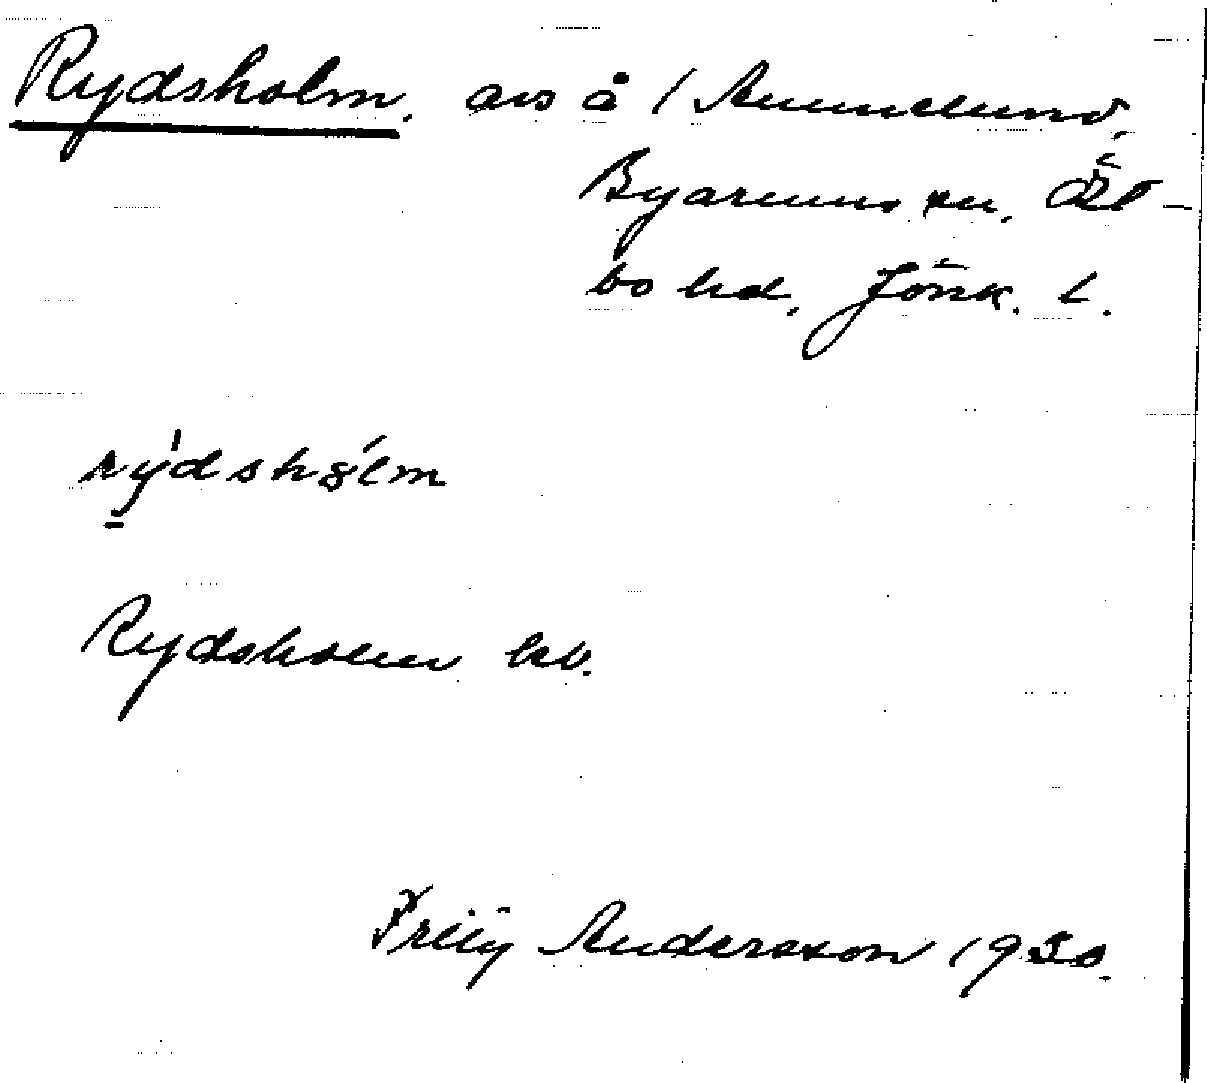 Rydsholm. avs å 1 Amundlund,
Byarums sn, Öst-
bo hd, Jönk. l.
rýdshólm
Rydsholm hd.
Andersson 1930.